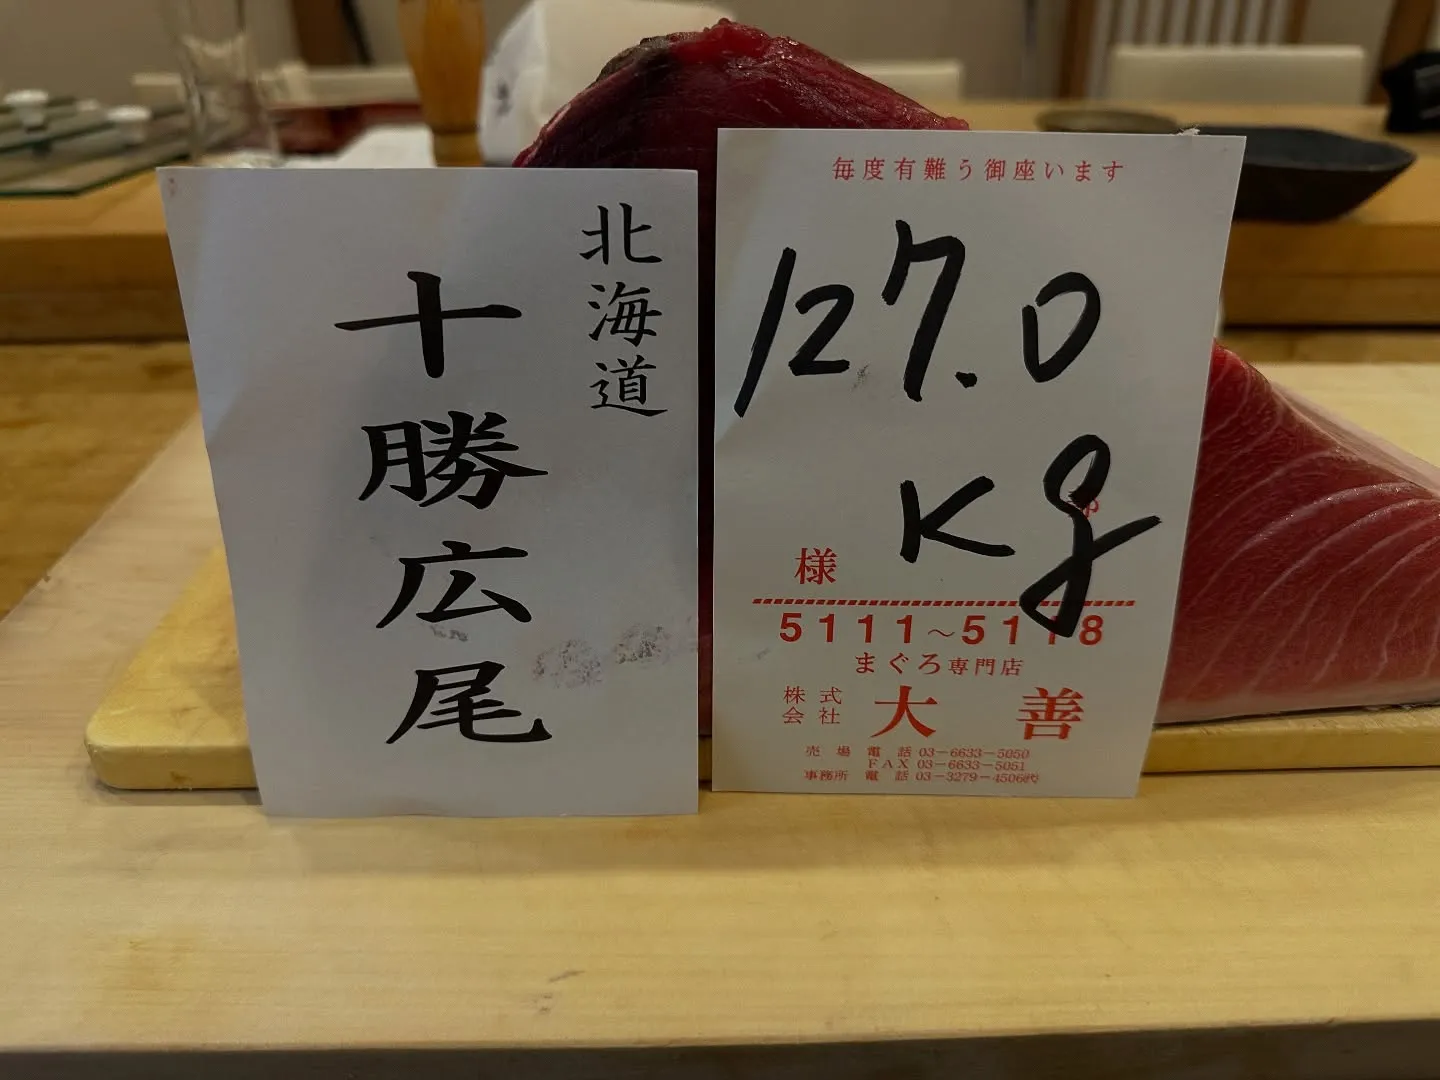 北海道
十勝広尾
毎度有難う御座います
127.0
Kg
様
5111～5118
まぐろ専門店
株式会社 大善
売場 電話 03-6633-5050
FAX 03-6633-5051
事務所 電話 03-3279-4506代